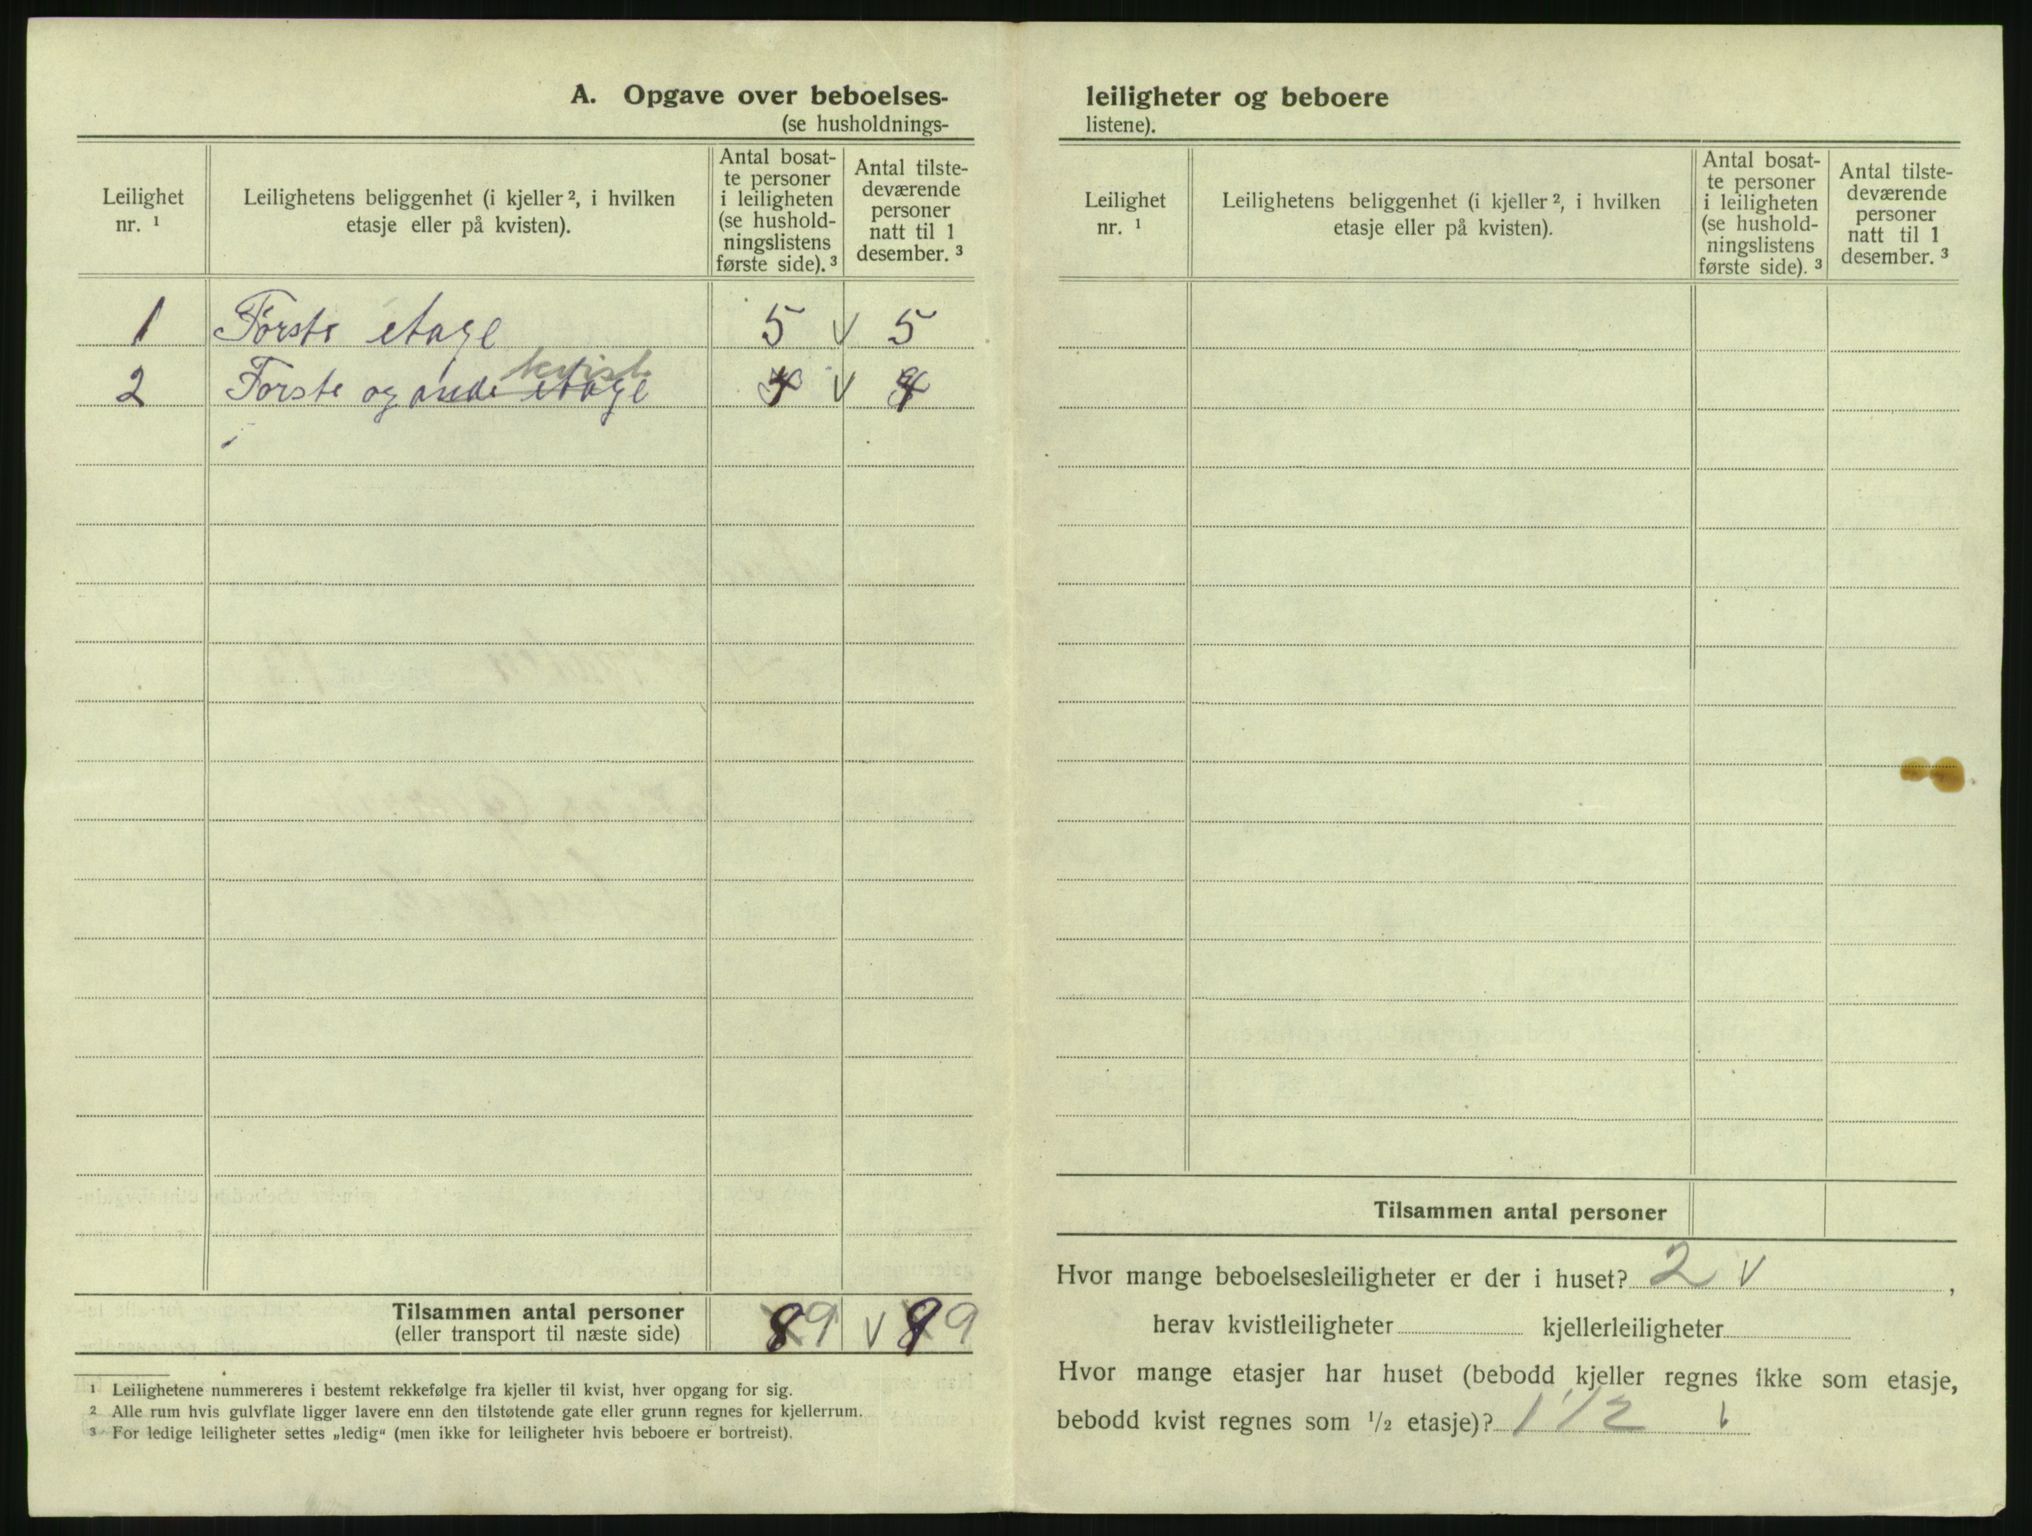 A. Opgave over beboelses-
(se husholdnings-
Leilighet nr. ¹
Leilighetens beliggenhet (i kjeller ², i hvilken etasje eller på kvisten).
Antal bosat-
te personer
i leiligheten
(se hushold-
ningslistens
første side). ³
Antal tilste-
deværende
personer
natt til 1
desember. ³
1 Første etage 5 v 5
kvist
2 Forste og ande etage 4 v 4
Tilsammen antal personer
(eller transport til næste side)
8 9 v 8 9
¹ Leilighetene nummereres i bestemt rekkefølge fra kjeller til kvist, hver opgang for sig.
² Alle rum hvis gulvflate ligger lavere enn den tilstøtende gate eller grunn regnes for kjellerrum.
³ For ledige leiligheter settes „ledig“ (men ikke for leiligheter hvis beboere er bortreist).
leiligheter og beboere
listene).
Leilighet nr. ¹
Leilighetens beliggenhet (i kjeller ², i hvilken etasje eller på kvisten).
Antal bosat-
te personer
i leiligheten
(se hushold-
ningslistens
første side). ³
Antal tilste-
deværende
personer
natt til 1
desember. ³
Tilsammen antal personer
Hvor mange beboelsesleiligheter er der i huset? 2 v ,
herav kvistleiligheter kjellerleiligheter
Hvor mange etasjer har huset (bebodd kjeller regnes ikke som etasje,
bebodd kvist regnes som ½ etasje)? 1 1/2